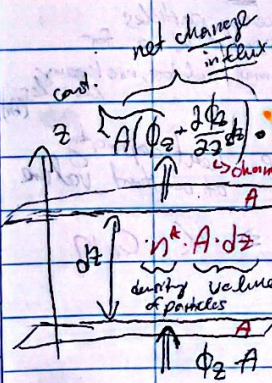 net change
in flux
cont.
z A(ϕz + ∂ϕz/∂z dz)
A
dz n* · A · dz
density
of particles
A
ϕz A